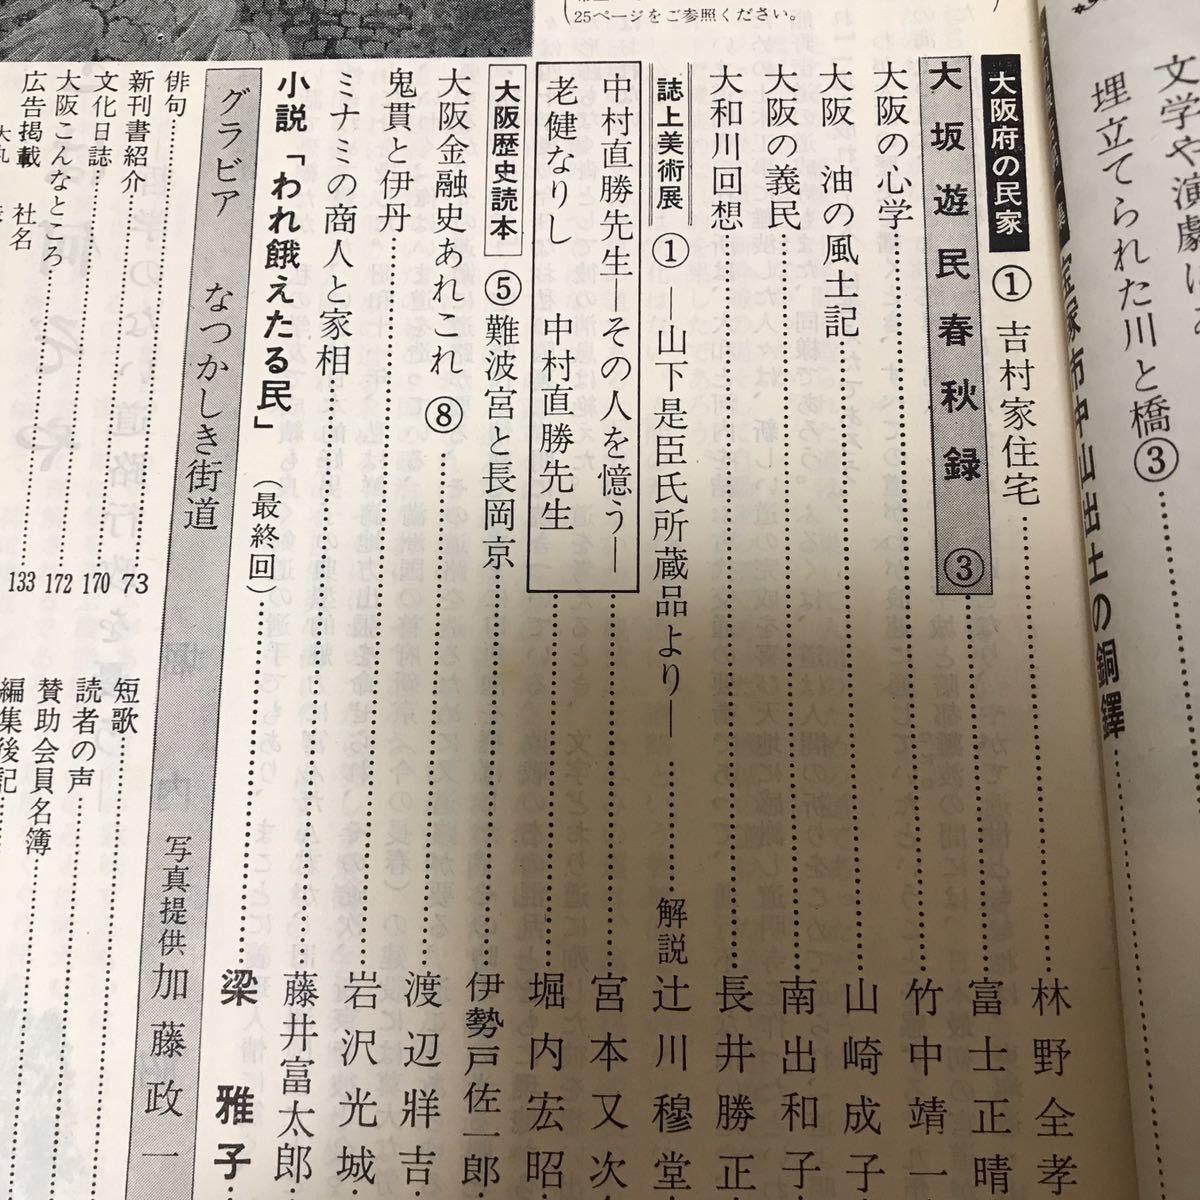 25ページをご参照ください。
文学や演劇に
埋立てられた川と橋③
宝塚市中山出土の銅鐸
大阪府の民家 ① 吉村家住宅 林野全孝
大坂遊民春秋録 ③ 富士正晴
大阪の心学 竹中靖一
大阪 油の風土記 山崎成子
大阪の義民 南出和子
大和川回想 長井勝正
誌上美術展 ① ―山下是臣氏所蔵品より― 解説 辻川穆堂
中村直勝先生―その人を憶う― 宮本又次
老健なりし 中村直勝先生 堀内宏昭
大阪歴史読本 ⑤ 難波宮と長岡京 伊勢戸佐一郎
大阪金融史あれこれ ⑧ 渡辺牂吉
鬼貫と伊丹 岩沢光城
ミナミの商人と家相 藤井富太郎
小説「われ餓えたる民」(最終回) 梁雅子
グラビア なつかしき街道 写真提供 加藤政一
俳句 73
新刊書紹介 170
文化日誌 172
大阪こんなところ 133
広告掲載 社名
短歌
読者の声
賛助会員名簿
編集後記